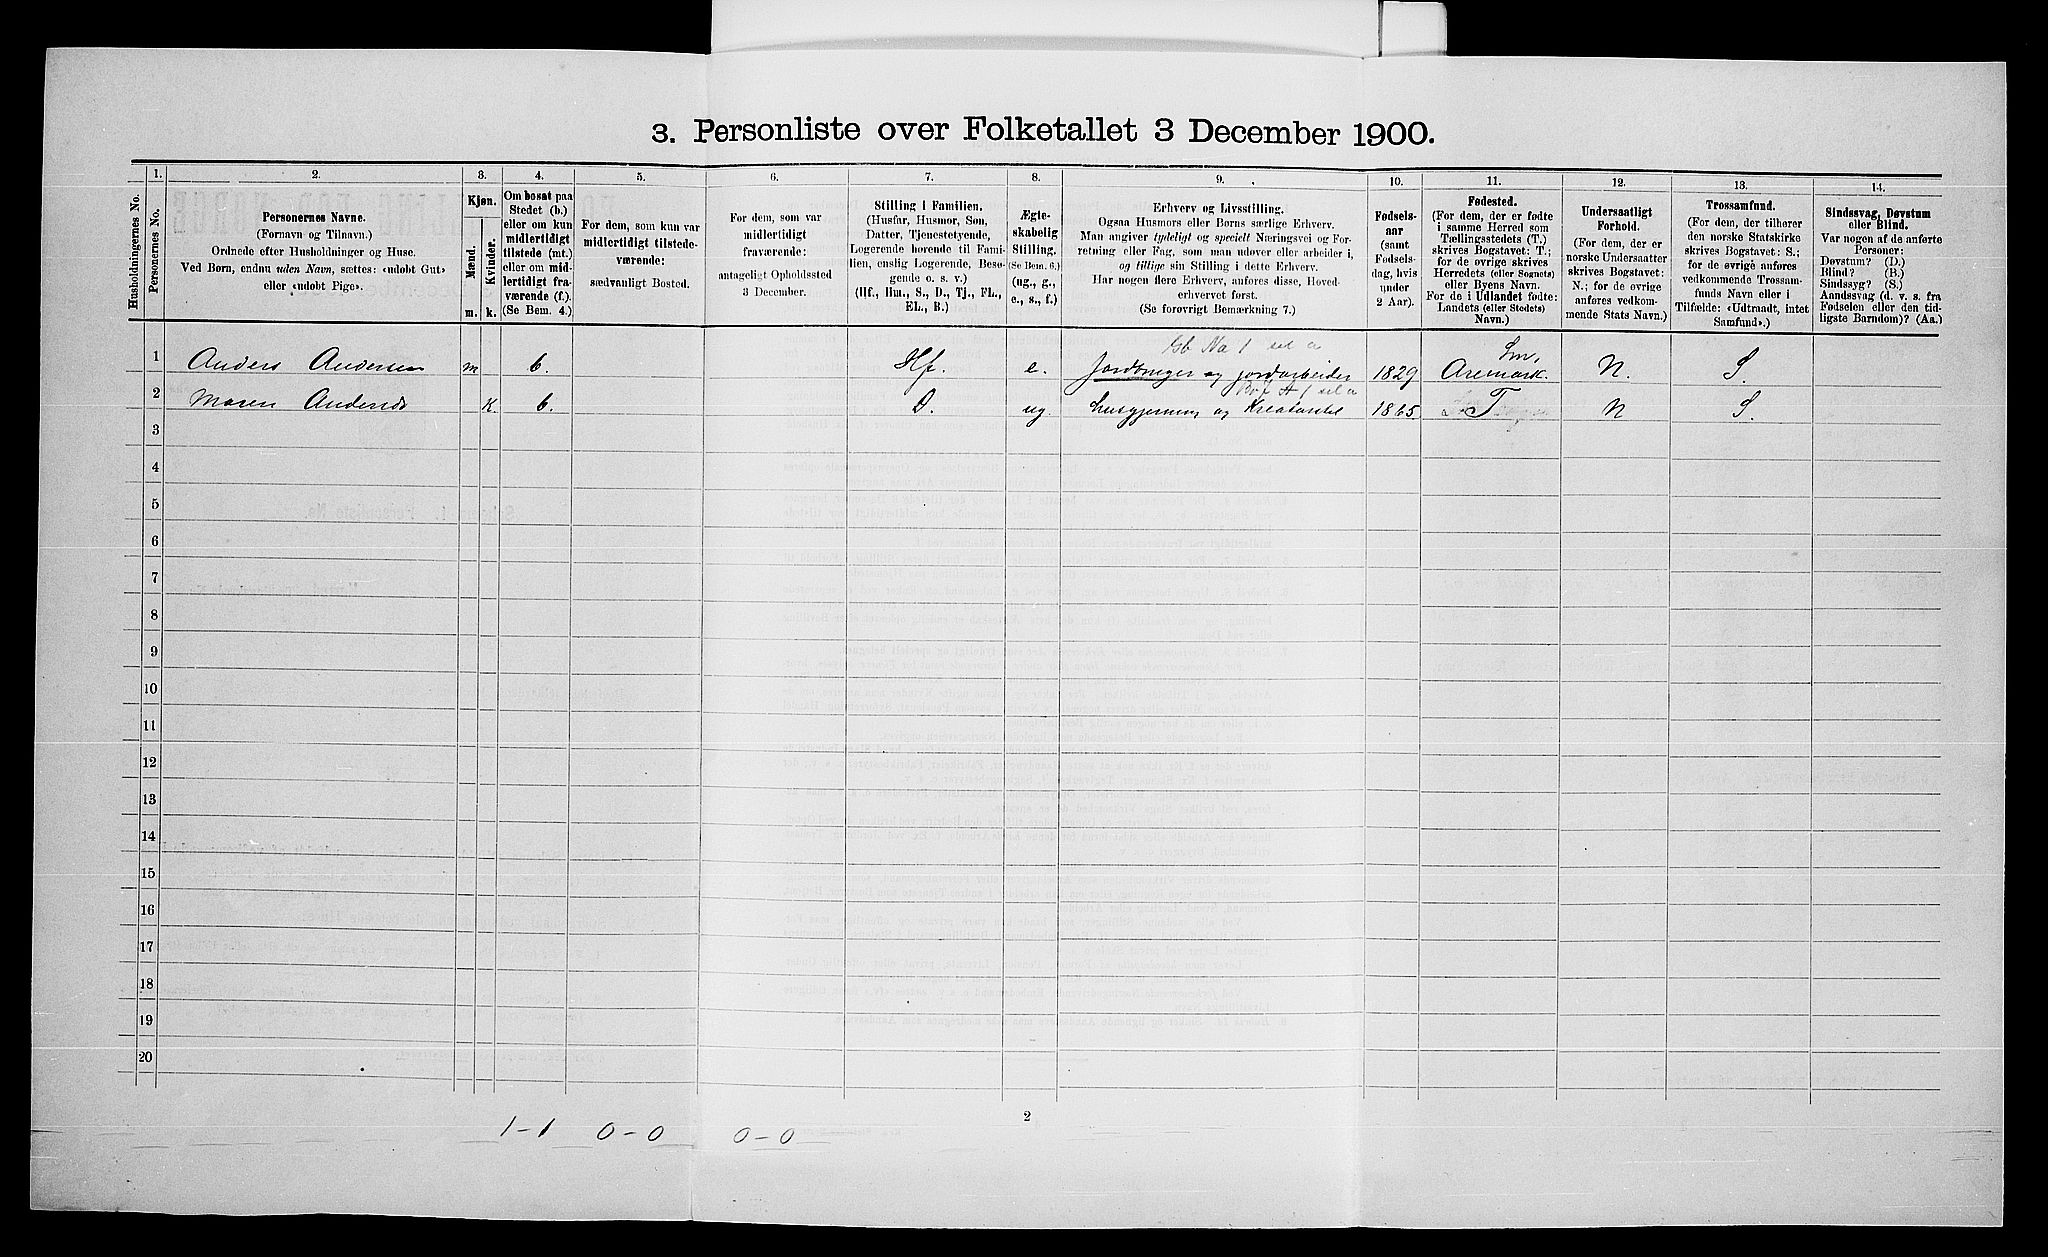 3. Personliste over Folketallet 3 December 1900.
Husholdningernes No.
1. Personernes No.
2. Personernes Navne.
(Fornavn og Tilnavn.)
Ordnede efter Husholdninger og Huse.
Ved Børn, endnu uden Navn, sættes: «udobt Gut»
eller «udobt Pige».
3. Kjøn.
Mænd. Kvinder.
m. k.
4. Om bosat paa
Stedet (b.)
eller om kun
midlertidigt
tilstede (mt.)
eller om mid-
lertidigt fra-
værende (f.)
(Se Bem. 4.)
5. For dem, som kun var
midlertidigt tilstede-
værende:
sædvanligt Bosted.
6. For dem, som var
midlertidigt
fraværende:
antageligt Opholdssted
3 December.
7. Stilling i Familien.
(Husfar, Husmor, Søn,
Datter, Tjenestetyende,
Logerende hørende til Fami-
lien, enslig Logerende, Besø-
gende o. s. v.)
(Hf., Hm., S., D., Tj., FL.,
EL., B.)
8. Ægte-
skabelig
Stilling.
(Se Bem. 6.)
(ug., g.,
e., s., f.)
9. Erhverv og Livsstilling.
Ogsaa Husmors eller Børns særlige Erhverv.
Man angiver tydeligt og specielt Næringsvei og For-
retning eller Fag, som man udøver eller arbeider i,
og tillige sin Stilling i dette Erhverv.
Har nogen flere Erhverv, anføres disse, Hoved-
erhvervet først.
(Se forøvrigt Bemærkning 7.)
10. Fødsels-
aar
(samt
Fødsels-
dag, hvis
under
2 Aar).
11. Fødested.
(For dem, der er fødte
i samme Herred som
Tællingsstedets (T.)
skrives Bogstavet: T.;
for de øvrige skrives
Herredets (eller Sognets)
eller Byens Navn.
For de i Udlandet fødte:
Landets (eller Stedets)
Navn.)
12. Undersaatligt
Forhold.
(For de, der er
norske Undersaatter
skrives Bogstavet:
N.; for de øvrige
anføres vedkom-
mende Stats Navn.)
13. Trossamfund.
(For dem, der tilhører
den norske Statskirke
skrives Bogstavet: S.;
for de øvrige anføres
vedkommende Trossam-
funds Navn eller i
Tilfælde: «Udtraadt, intet
Samfund».)
14. Sindssvag, Døvstum
eller Blind.
Var nogen af de anførte
Personer:
Døvstum? (D.)
Blind? (B.)
Sindssyg? (S.)
Aandssvag (d. v. s. fra
Fødselen eller den tid-
ligste Barndom)? (Aa.)
1 Anders Andersen m b. Hf. e. Jordbruger og jordarbeider 1829 Aremark. N. S.
2 Maren Andersd. k b. D. ug. husgjerning og Kreaturstel 1865. T N S.
3
4
5
6
7
8
9
10
11
12
13
14
15
16
17
18
19
20
1-1 0-0 0-0
2